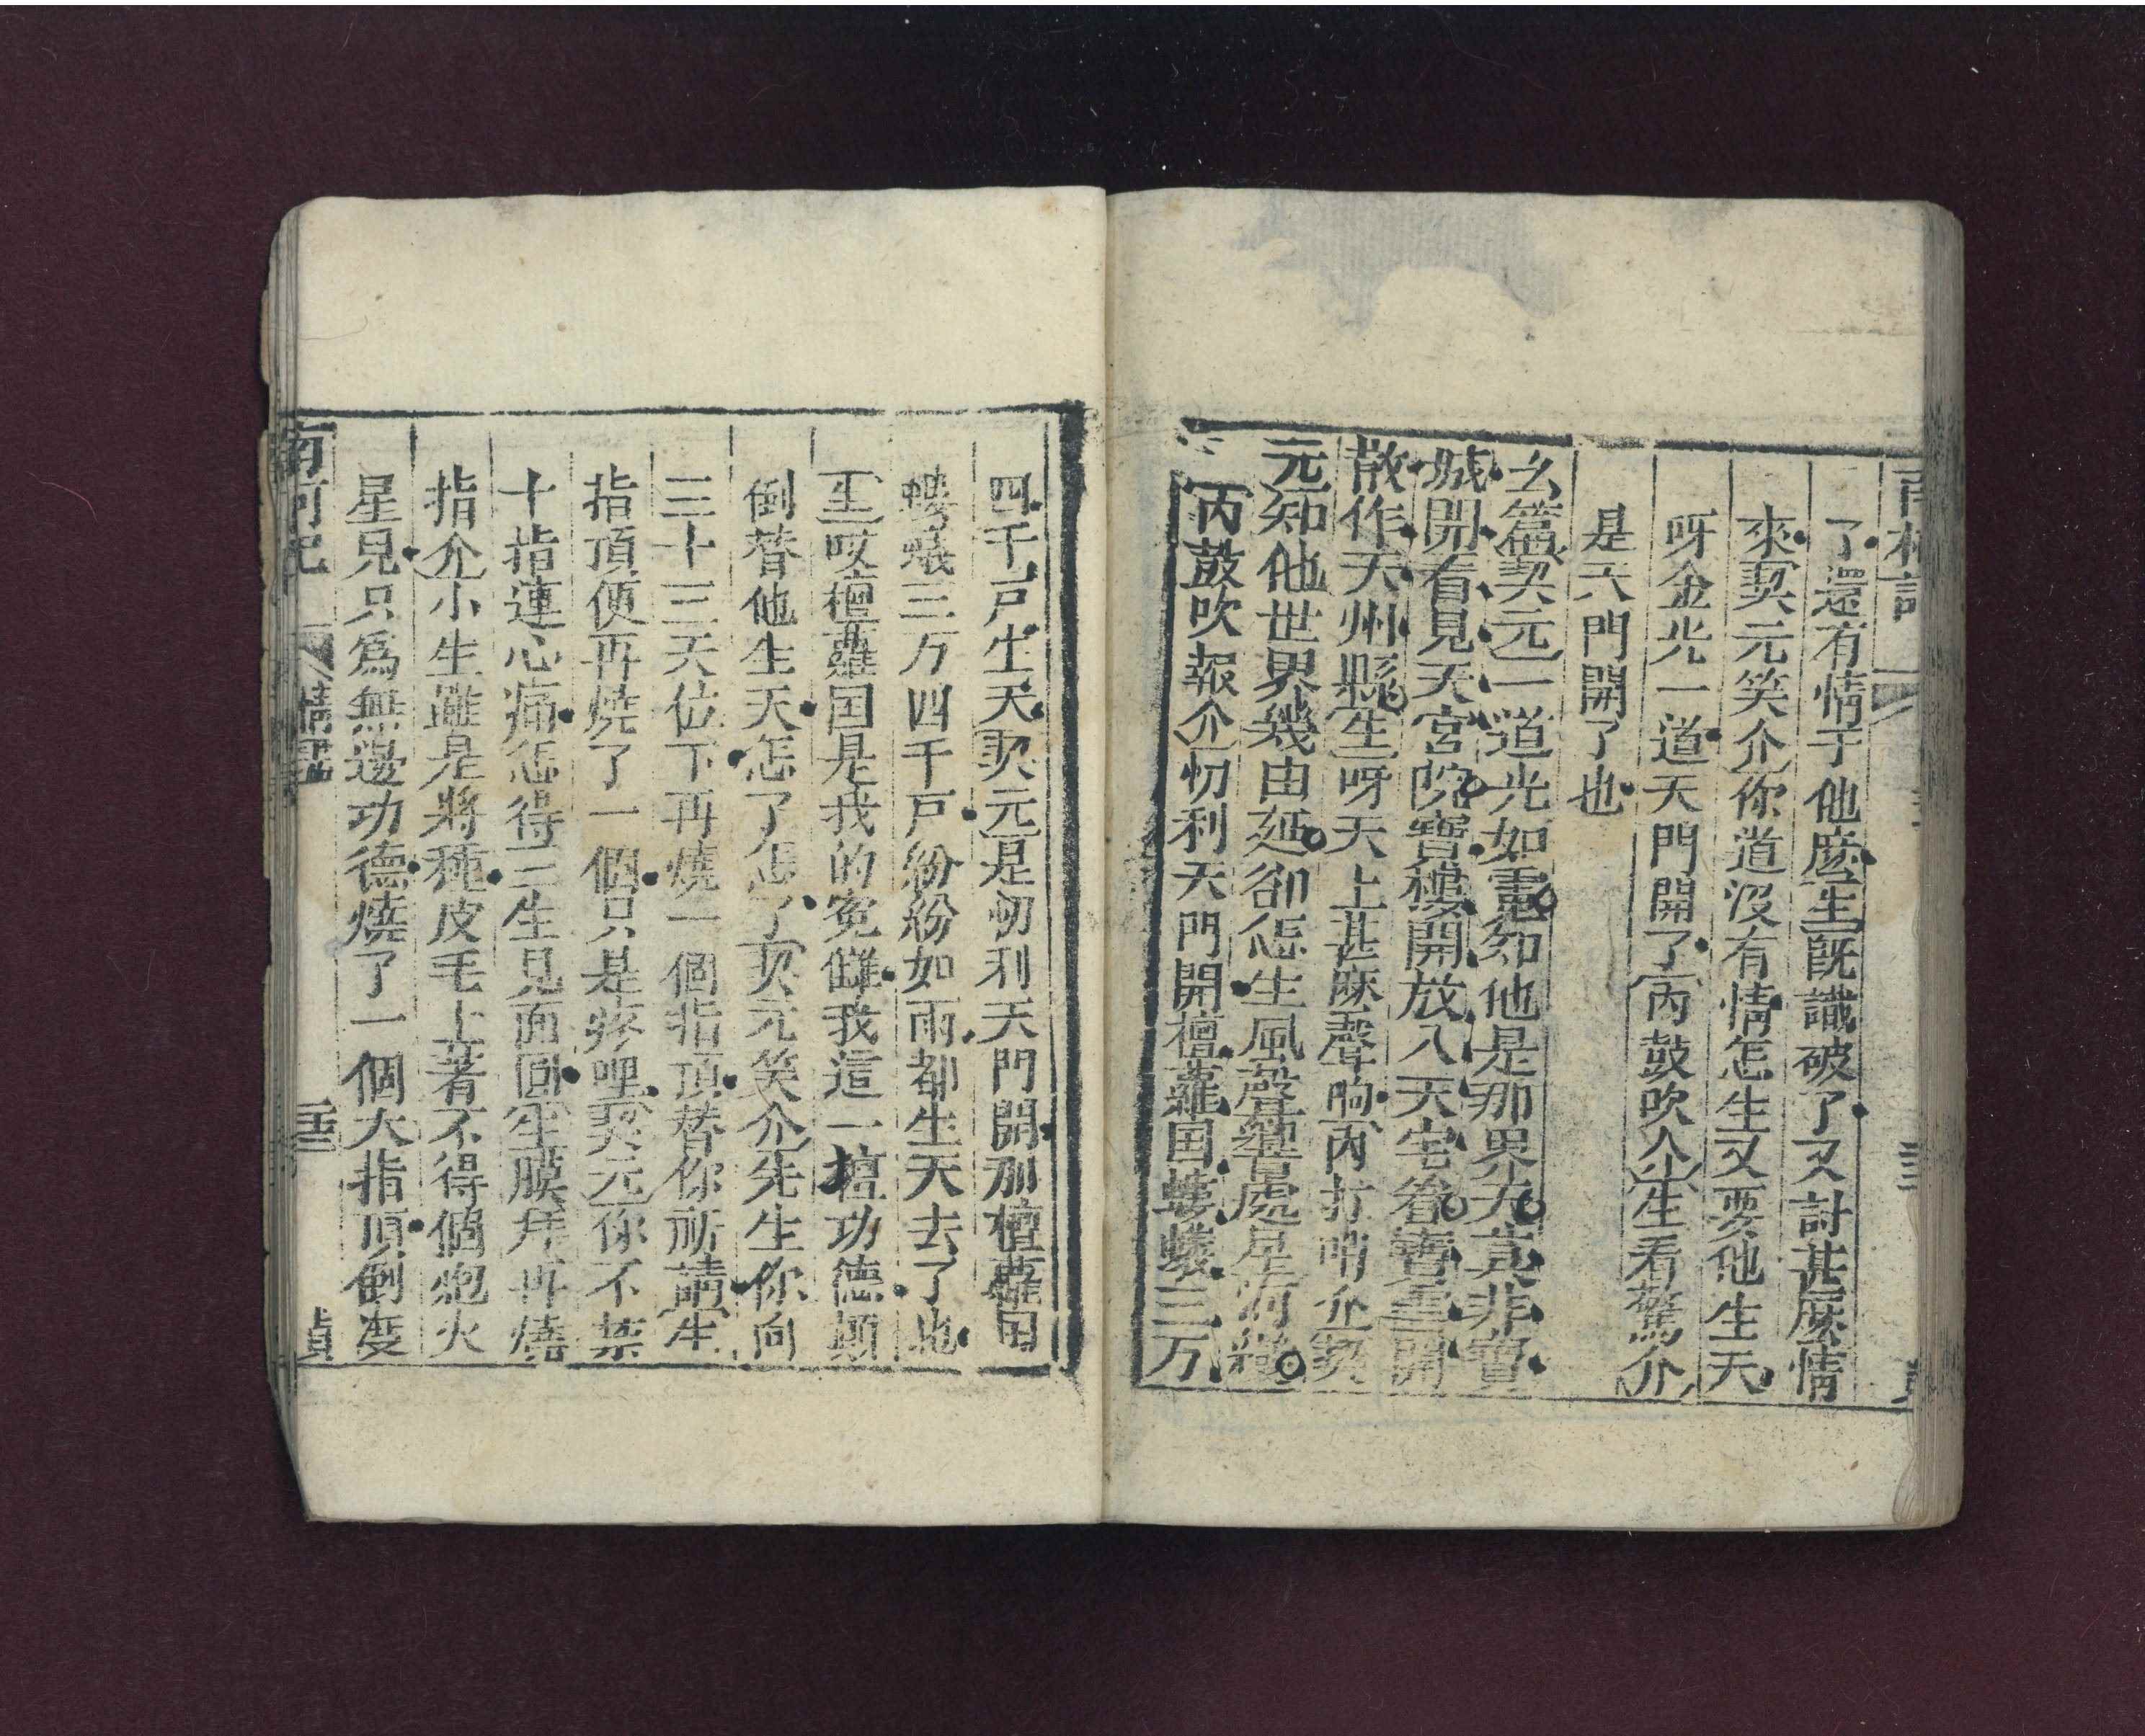 南柯記
了還有情于他麽生既識破了又討甚麽情
來契元笑介你道没有情怎生又要他生天
呀金光一道天門開了內鼓吹介生看驚介
是天門開了也
么篇契元一道光如電知他是那界天真非實
城開看見天宮院寶樓開放入天宅眷雲開
散作天州縣生呀天上甚麽聲响內打哨介契
元知他世界幾由延卻怎生風聲處是河
內鼓吹報介忉利天門開檀蘿国螻蟻三万
四千戸生天契元是忉利天門開那檀蘿国
螻蟻三万四千戸紛紛如雨都生天去了也
生哎檀蘿国是我的冤讎我這一壇功德顛
倒替他生天怎了怎了契元笑介先生你向
三十三天位下再燒一個指頂替你祈請生
指頂便再燒了一個只是疼哩契元你不禁
十指連心痛怎得三生見面回生膜拜再燒
指介小生雖是將種皮毛上著不得個炮火
星兒只爲無邊功德燒了一個大指頂倒度
南柯記 情盡 貞